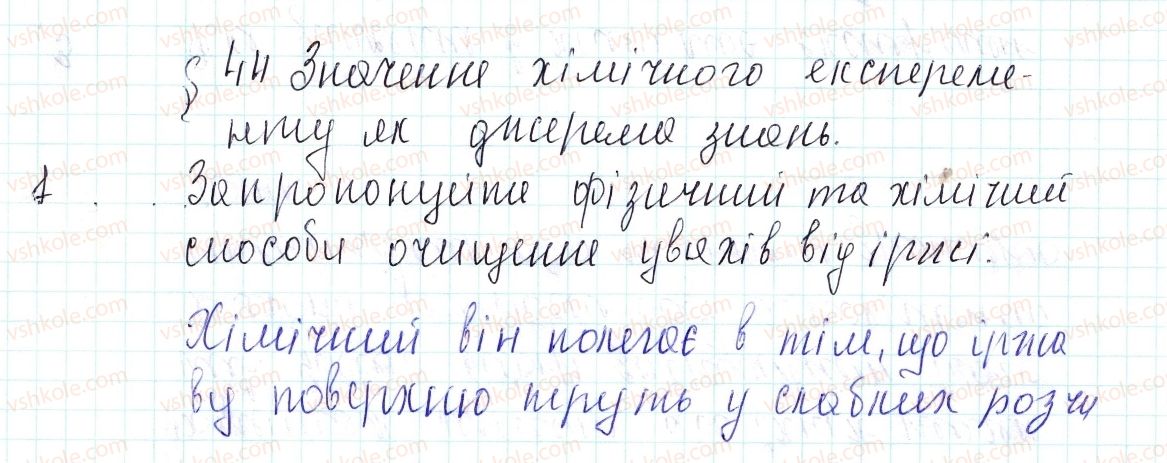 § 44 Значення хімічного експереме-
нту як джерела знань.
1 Запропонуйте фізичний та хімічний
способи очищення цвяхів від іржі.
Хімічний він полегає в тім, що іржа
ву поверхню труть у слабких розчи